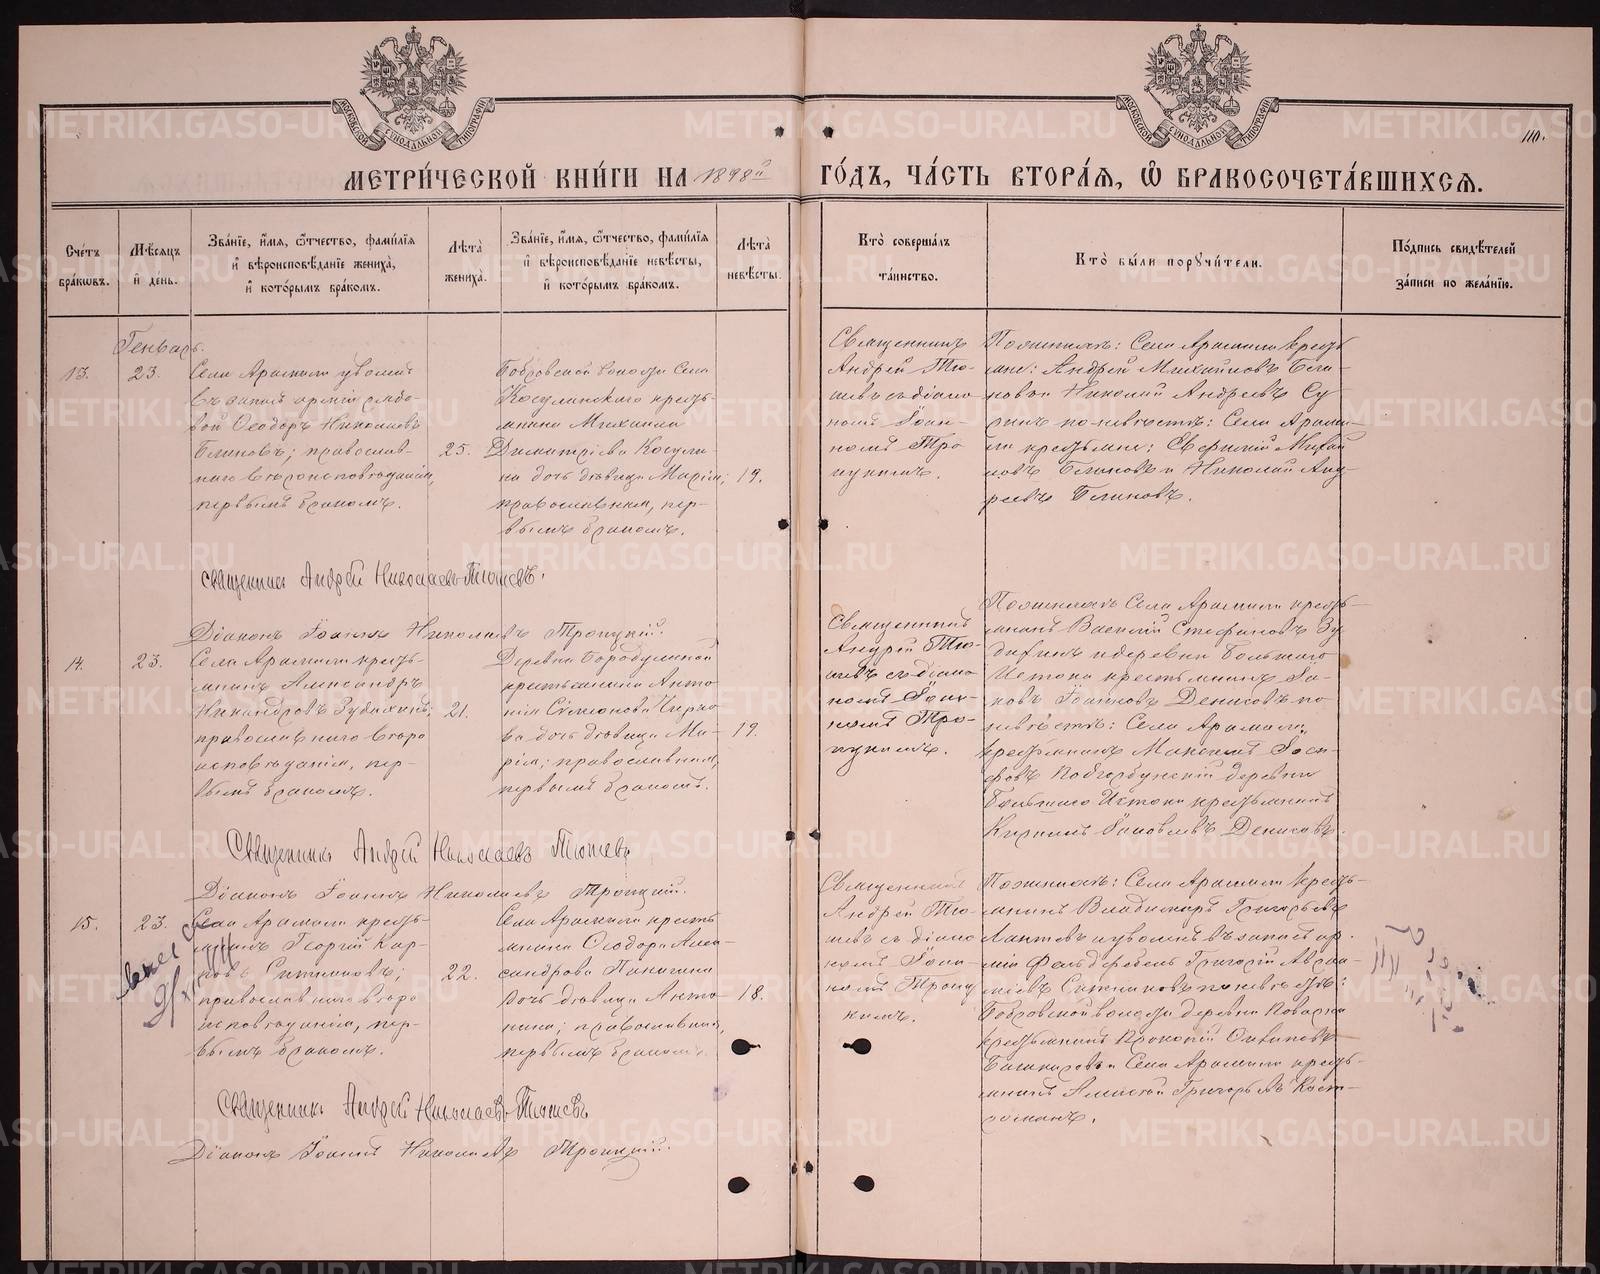 МОСКОВСКОЙ СѴНОДАЛЬНОЙ ТИПОГРАФІИ
МОСКОВСКОЙ СѴНОДАЛЬНОЙ ТИПОГРАФІИ
110.
МЕТРИ́ЧЕСКОЙ КНИ́ГИ НА 1898й ГО́ДЪ, ЧА́СТЬ ВТОРА́Я, Ѽ БРАКОСОЧЕТА́ВШИХСЯ.
Сче́тъ бра́кѡвъ.
Мѣ́сяцъ и҆ де́нь.
Зва́нїе, и҆́мѧ, ѻ҆́тчество, фами́лїѧ и҆ вѣроисповѣ́данїе жениха̀, и҆ кото́рымъ бра́комъ.
Лѣ́та жениха̀.
Зва́нїе, и҆́мѧ, ѻ҆́тчество, фами́лїѧ и҆ вѣроисповѣ́данїе невѣ́сты, и҆ кото́рымъ бра́комъ.
Лѣ́та невѣ́сты.
Кто̀ соверша́лъ та́инство.
Кто̀ бы́ли порꙋчи́тели.
По́дпись свидѣ́телей за́писи по жела́нїю.
Генварь
13.
23.
Села Арамили уволен.
въ запас арміи рядо-
вой Ѳеодоръ Николаевъ
Блиновъ; православ-
наго вѣроисповѣданія,
первымъ бракомъ.
25.
Бобровской волости Села
Косулинскаго кресть-
янина Михаила
Димитріева Косули-
на дочь дѣвица Марія;
православная, пер-
вымъ бракомъ.
19.
Священникъ
Андрей Тю-
шевъ съ діако-
номъ Іоан-
номъ Тро-
ицкимъ.
По женихѣ: Села Арамили кресть
яне: Андрей Михайловъ Бли-
новъ и Николай Андреевъ Су
по невѣстѣ: Села Арами-
ли крестьяне: Михай
ловъ Блиновъ и Николай Анд-
реевъ Блиновъ.
Священникъ Андрей Николаевъ Тюшевъ.
Діаконъ Іоаннъ Николаевъ Троицкій.
14.
23.
Села Арамили кресть-
янинъ Александръ
Никандровъ Зудихинъ;
православнаго вѣро
исповѣданія, пер-
вымъ бракомъ.
21.
Деревни Бородулиной
крестьянина Анто-
нія Сѵмеонова
ва дочь дѣвица Ма-
рія; православная,
первымъ бракомъ.
19.
Священникъ
Андрей Тю-
шевъ съ діако
номъ Іоан-
номъ Тро-
ицкимъ.
По женихѣ Села Арамили кресть-
янинъ Василій Стефановъ Зу-
дихинъ и деревни Большаго
Истока крестьянинъ Іа-
ковъ Іоанновъ Денисовъ по
невѣстѣ: Села Арамили
крестьянинъ Максимъ Іоси-
фовъ Подгорбунскій деревни
Большаго Истока крестьянинъ
Кириллъ Іаковлевъ Денисовъ.
Священникъ Андрей Николаевъ Тюшевъ
Діаконъ Іоаннъ Николаевъ Троицкій.
15.
23.
Села Арамили кресть-
янинъ Георгій Кар-
повъ
православнаго вѣро
исповѣданія, пер-
вымъ бракомъ.
22.
Села Арамили кресть
янина Ѳеодора Алек-
сандрова
дочь дѣвица Анто-
нина; православная,
первымъ бракомъ.
18.
Священникъ
Андрей Тю-
шевъ съ діако
номъ Іоан-
номъ Троиц
кимъ.
По женихѣ: Села Арамили кресть-
янинъ Владимиръ Григорьевъ
Лаптевъ и уволен. въ запасъ ар-
міи Фельдфебель Григорій Авраа-
міевъ по невѣстѣ:
Бобровской волости деревни
крестьянинъ Прокопій
и Села Арамили кресть-
янинъ Алексѣй Григорьевъ Кост-
романъ.
Священникъ Андрей Николаевъ Тюшевъ
Діаконъ Іоаннъ Николаевъ Троицкій.
METRIKI.GASO-URAL.RU